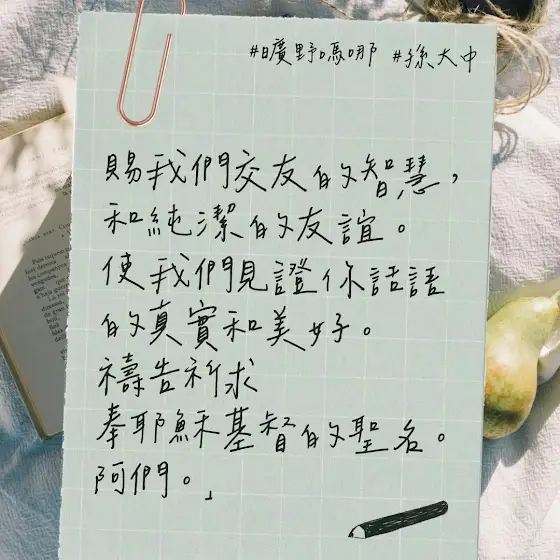 #曠野嗎哪 #孫大中
賜我們交友的智慧，
和純潔的友誼。
使我們見證你話語
的真實和美好。
禱告祈求
奉耶穌基督的聖名。
阿們。」